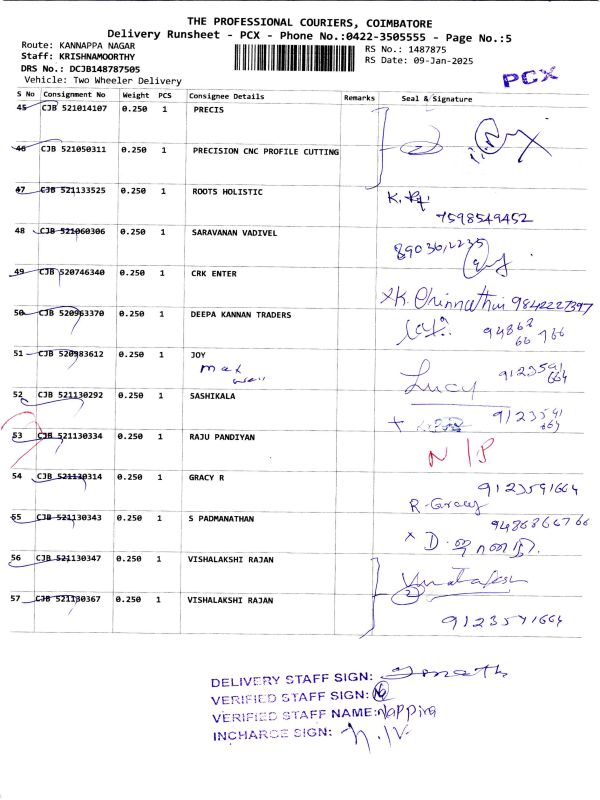 THE PROFESSIONAL COURIERS, COIMBATORE
Delivery Runsheet - PCX - Phone No.:0422-3505555 - Page No.:5
Route: KANNAPPA NAGAR
Staff: KRISHNAMOORTHY
DRS No.: DCJB148787505
Vehicle: Two Wheeler Delivery
RS No.: 1487875
RS Date: 09-Jan-2025
PCX
S No Consignment No Weight PCS Consignee Details Remarks Seal & Signature
45 CJB 521014107 0.250 1 PRECIS
46 CJB 521050311 0.250 1 PRECISION CNC PROFILE CUTTING
2
47 CJB 521133525 0.250 1 ROOTS HOLISTIC
7598549452
48 CJB 521060306 0.250 1 SARAVANAN VADIVEL
49 CJB 520746340 0.250 1 CRK ENTER
9842227397
50 CJB 520963370 0.250 1 DEEPA KANNAN TRADERS
51 CJB 520983612 0.250 1 JOY
Lucy 9123591
664
52 CJB 521130292 0.250 1 SASHIKALA
9123591
664
53 CJB 521130334 0.250 1 RAJU PANDIYAN
N/P
54 CJB 521130314 0.250 1 GRACY R
9123591664
R-Gracy
55 CJB 521130343 0.250 1 S PADMANATHAN
56 CJB 521130347 0.250 1 VISHALAKSHI RAJAN
2
57 CJB 521130367 0.250 1 VISHALAKSHI RAJAN
9123591664
DELIVERY STAFF SIGN:
VERIFIED STAFF SIGN:
VERIFIED STAFF NAME:
INCHARGE SIGN: